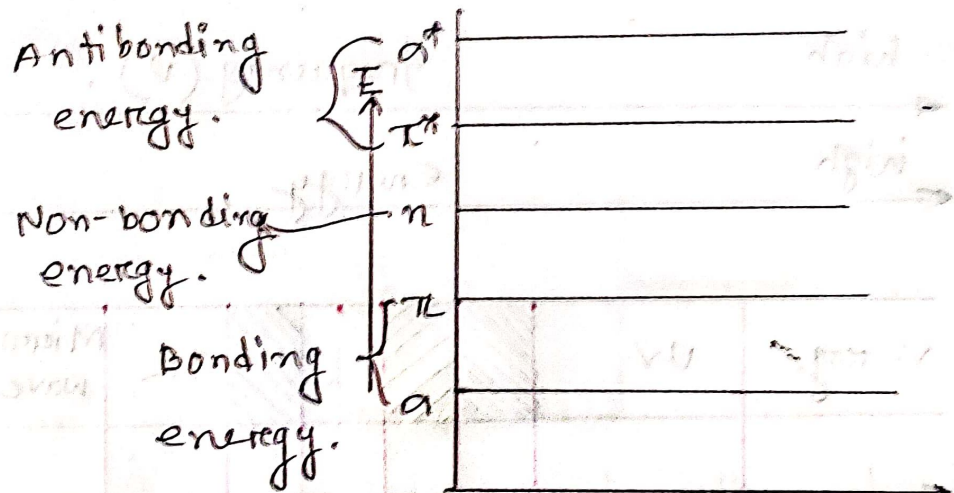 Antibonding
energy.
σ*
E
π*
Non-bonding
energy.
n
π
Bonding
energy.
σ